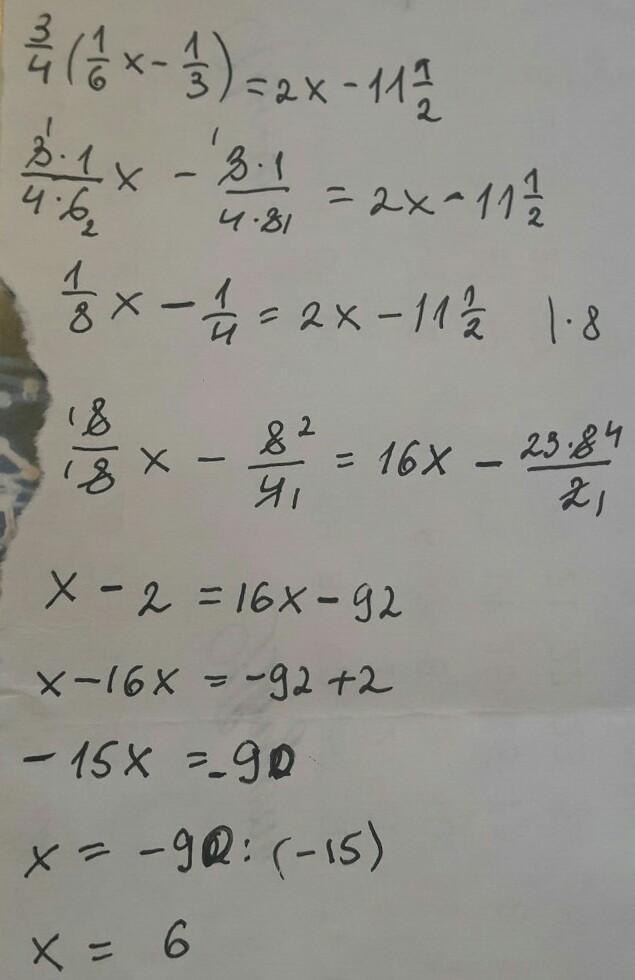 3/4 (1/6 x - 1/3) = 2x - 11 1/2
3·1/4·6 x - 3·1/4·3 = 2x - 11 1/2
1/8 x - 1/4 = 2x - 11 1/2 |·8
8/8 x - 8/4 = 16x - 23·8/2
x - 2 = 16x - 92
x - 16x = -92 + 2
- 15x = -90
x = -90 : (-15)
x = 6